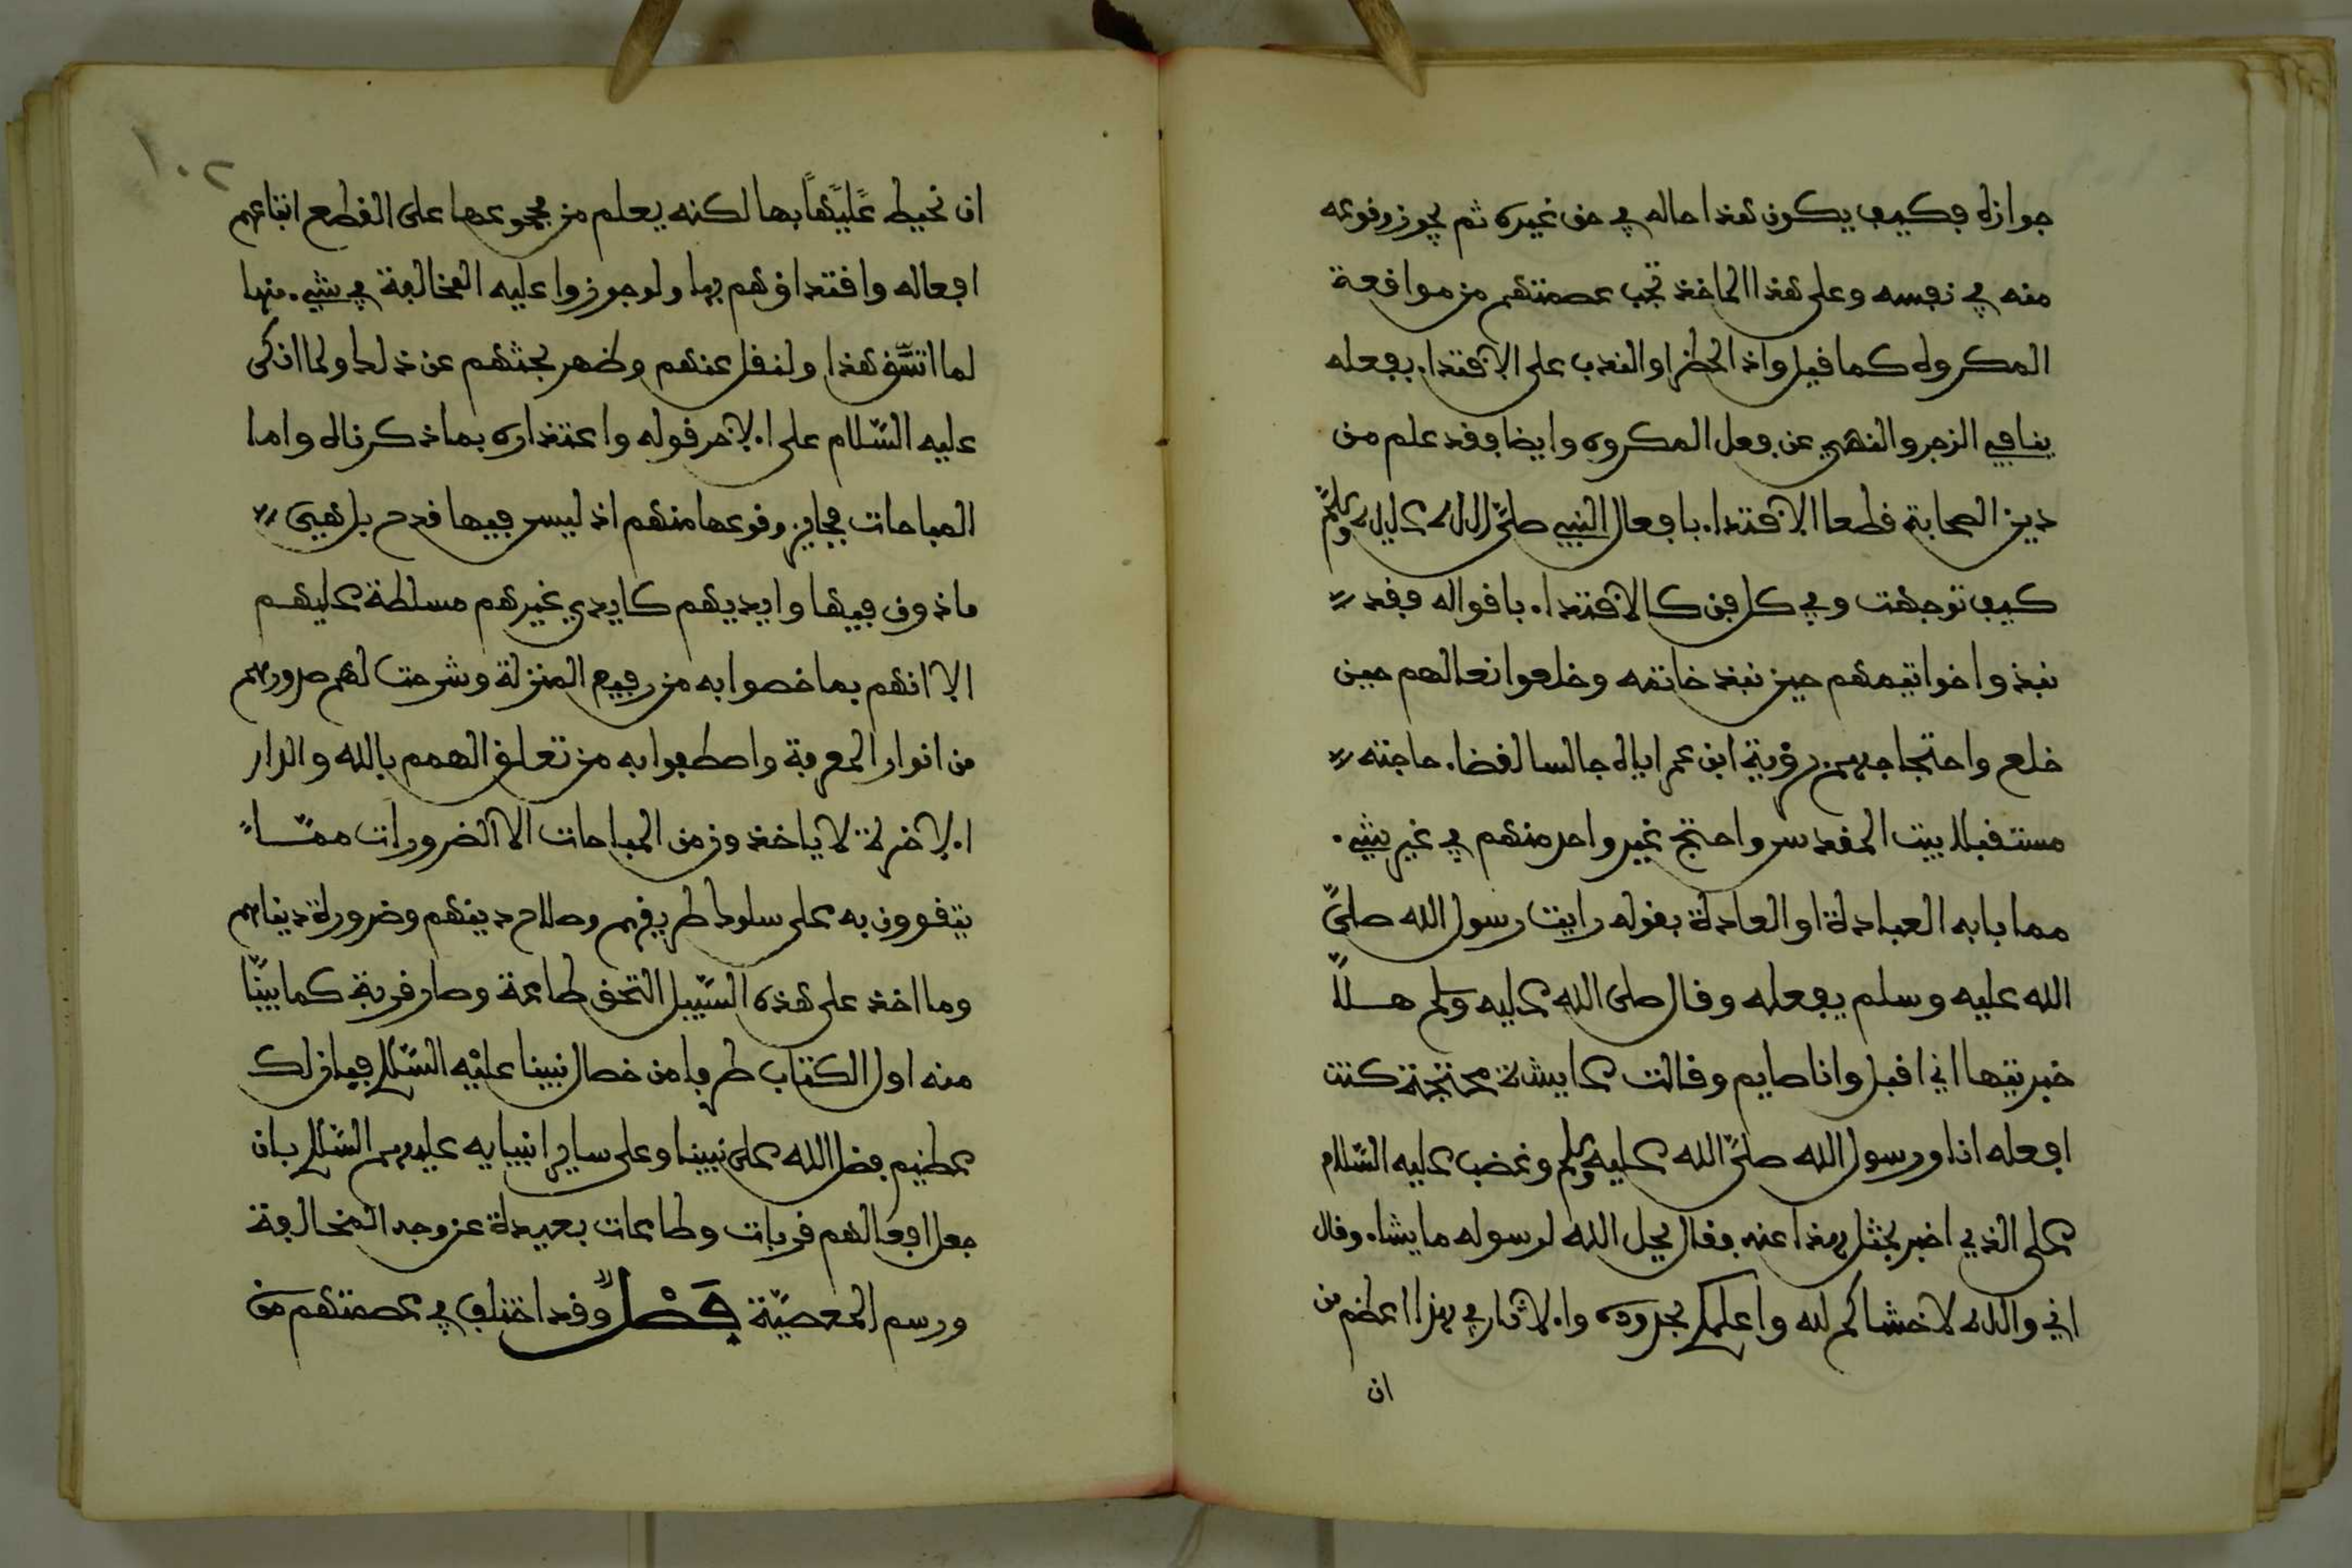 جوازه فكيف يكون هذا حاله في حق غيره ثم يجوز وقوعه
منه في نفسه وعلى هذا الماخذ تجب عصمتهم من موافعة
المكروه كما قيل واذ الحظر او الندب على الاقتداء بفعله
ينافي الزجر والنهي عن فعل المكروه وايضا فقد علم من
دين الصحابة قطعا الاقتداء بافعال النبي صلى الله عليه وسلم
كيف توجهت وفي كل فن كالاقتداء باقواله فقد
نبذوا خواتيمهم حين نبذ خاتمه وخلعوا نعالهم حين
خلع واحتجاجهم برؤية ابن عمر اياه جالسا لقضاء حاجته
مستقبلا بيت المقدس واحتج غير واحد منهم في غير شيء
مما بابه العبادة او العادة بقوله رايت رسول الله صلى
الله عليه وسلم يفعله وقال صلى الله عليه وسلم هلا
خبرتيها اني اقبل وانا صايم وقالت عايشة محتجة كنت
افعله انا ورسول الله صلى الله عليه وسلم وغضب عليه السلام
على الذي اخبر بمثل هذا عنه فقال يحل الله لرسوله ما يشاء وقال
اني والله لاخشاكم لله واعلمكم بحدوده والاثار في هذا اعظم من
ان
١٠٢
ان نحيط عليها بها لكنه يعلم من مجموعها على القطع اتباعهم
افعاله واقتداؤهم بها ولو جوزوا عليه المخالفة في شيء منها
لما اتسق هذا ولنقل عنهم وظهر بحثهم عن ذلك ولما انكر
عليه السلام على الاخر قوله واعتذاره بما ذكرناه واما
المباحات فجايز وقوعها منهم اذ ليس فيها قدح بل هي
ماذون فيها وايديهم كايدي غيرهم مسلطة عليهم
الا انهم بما خصوا به من رفيع المنزلة وشرحت لهم صدورهم
من انوار المعرفة واصطفوا به من تعلق الهمم بالله والدار
الاخرة لا ياخذون من المباحات الا الضرورات مما
يتقوون به على سلوك طريقهم وصلاح دينهم وضرورة دنياهم
وما اخذ على هذه السبيل التحق طاعة وصار قربة كما بينا
منه اول الكتاب طرفا من خصال نبينا عليه السلام فبان لك
عظيم فضل الله على نبينا وعلى ساير انبيايه عليهم السلام بان
جعل افعالهم قربات وطاعات بعيدة عن وجه المخالفة
ورسم المعصية فصل وقد اختلف في عصمتهم من